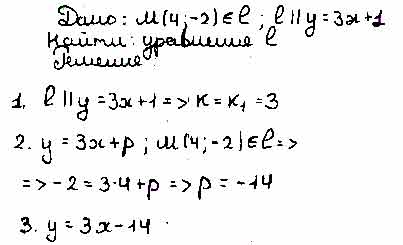 Дано: М(4;-2)∈l; l||y=3x+1
Найти: уравнение l
Решение:
1. l||y=3x+1=>к=к₁=3
2. y=3x+p; М(4;-2)∈l=>
=>-2=3·4+p=>p=-14
3. y=3x-14